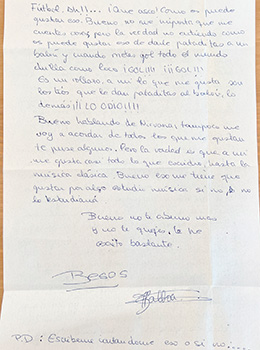 Fútbol, ah!!... ¡Que asco! Como os puede
gustar eso. Bueno no me importa que me
cuentes cosas pero la verdad no entiendo como
os puede gustar eso de darle patadas a un
balón y cuando metes gol todo el mundo
chilla como loco ¡GOL!!! ¡¡GOL!!!
Es un rollazo, a mi lo que me gusta son
los tíos que le dan pataditas al balón, lo
demás ¡¡¡LO ODIO!!!!
Bueno hablando de Nirvana, tampoco me
voy a acordar de todos los que me gustan
te puse algunos. Pero la verdad es que a mi
me gusta casi todo lo que escucho, hasta la
música clásica. Bueno eso me tiene que
gustar por algo estudio música si no, no
lo estudiaría
Bueno no te aburro mas
y no te quejes, te he
bastante.
BESOS
P.D: Escríbeme contándome eso o si no....